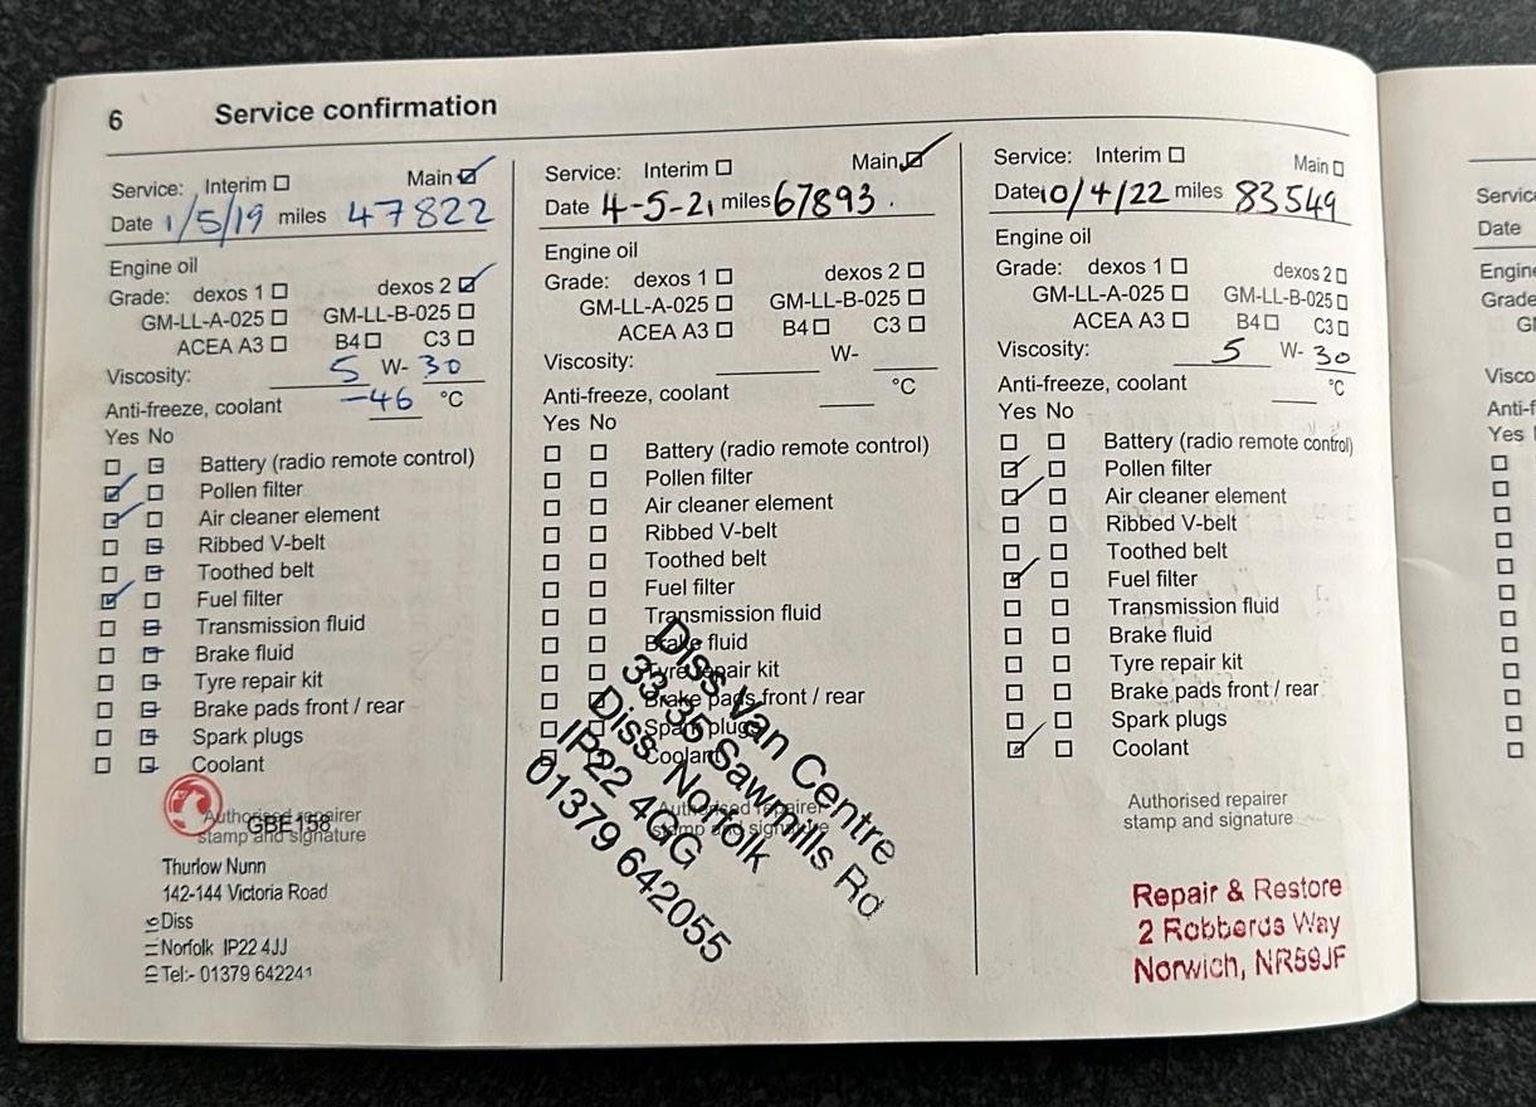 6 Service confirmation
Service: Interim Main
Date 1/5/19 miles 47822
Engine oil
Grade: dexos 1 dexos 2
GM-LL-A-025 GM-LL-B-025
ACEA A3 B4 C3
Viscosity: 5 W- 30
Anti-freeze, coolant -46 °C
Yes No
Battery (radio remote control)
Pollen filter
Air cleaner element
Ribbed V-belt
Toothed belt
Fuel filter
Transmission fluid
Brake fluid
Tyre repair kit
Brake pads front / rear
Spark plugs
Coolant
Authorised repairer
GBE158
stamp and signature
Thurlow Nunn
142-144 Victoria Road
Diss
Norfolk IP22 4JJ
Tel:- 01379 642241
Service: Interim Main
Date 4-5-21 miles 67893.
Engine oil
Grade: dexos 1 dexos 2
GM-LL-A-025 GM-LL-B-025
ACEA A3 B4 C3
Viscosity: W-
Anti-freeze, coolant °C
Yes No
Battery (radio remote control)
Pollen filter
Air cleaner element
Ribbed V-belt
Toothed belt
Fuel filter
Transmission fluid
Brake fluid
Tyre repair kit
Brake pads front / rear
Spark plugs
Coolant
Authorised repairer
stamp and signature
Diss Van Centre
33-35 Sawmills Rd
Diss Norfolk
IP22 4GG
01379 642055
Service: Interim Main
Date 10/4/22 miles 83549
Engine oil
Grade: dexos 1 dexos 2
GM-LL-A-025 GM-LL-B-025
ACEA A3 B4 C3
Viscosity: 5 W- 30
Anti-freeze, coolant °C
Yes No
Battery (radio remote control)
Pollen filter
Air cleaner element
Ribbed V-belt
Toothed belt
Fuel filter
Transmission fluid
Brake fluid
Tyre repair kit
Brake pads front / rear
Spark plugs
Coolant
Authorised repairer
stamp and signature
Repair & Restore
2 Robberds Way
Norwich, NR59JF
Date
Yes